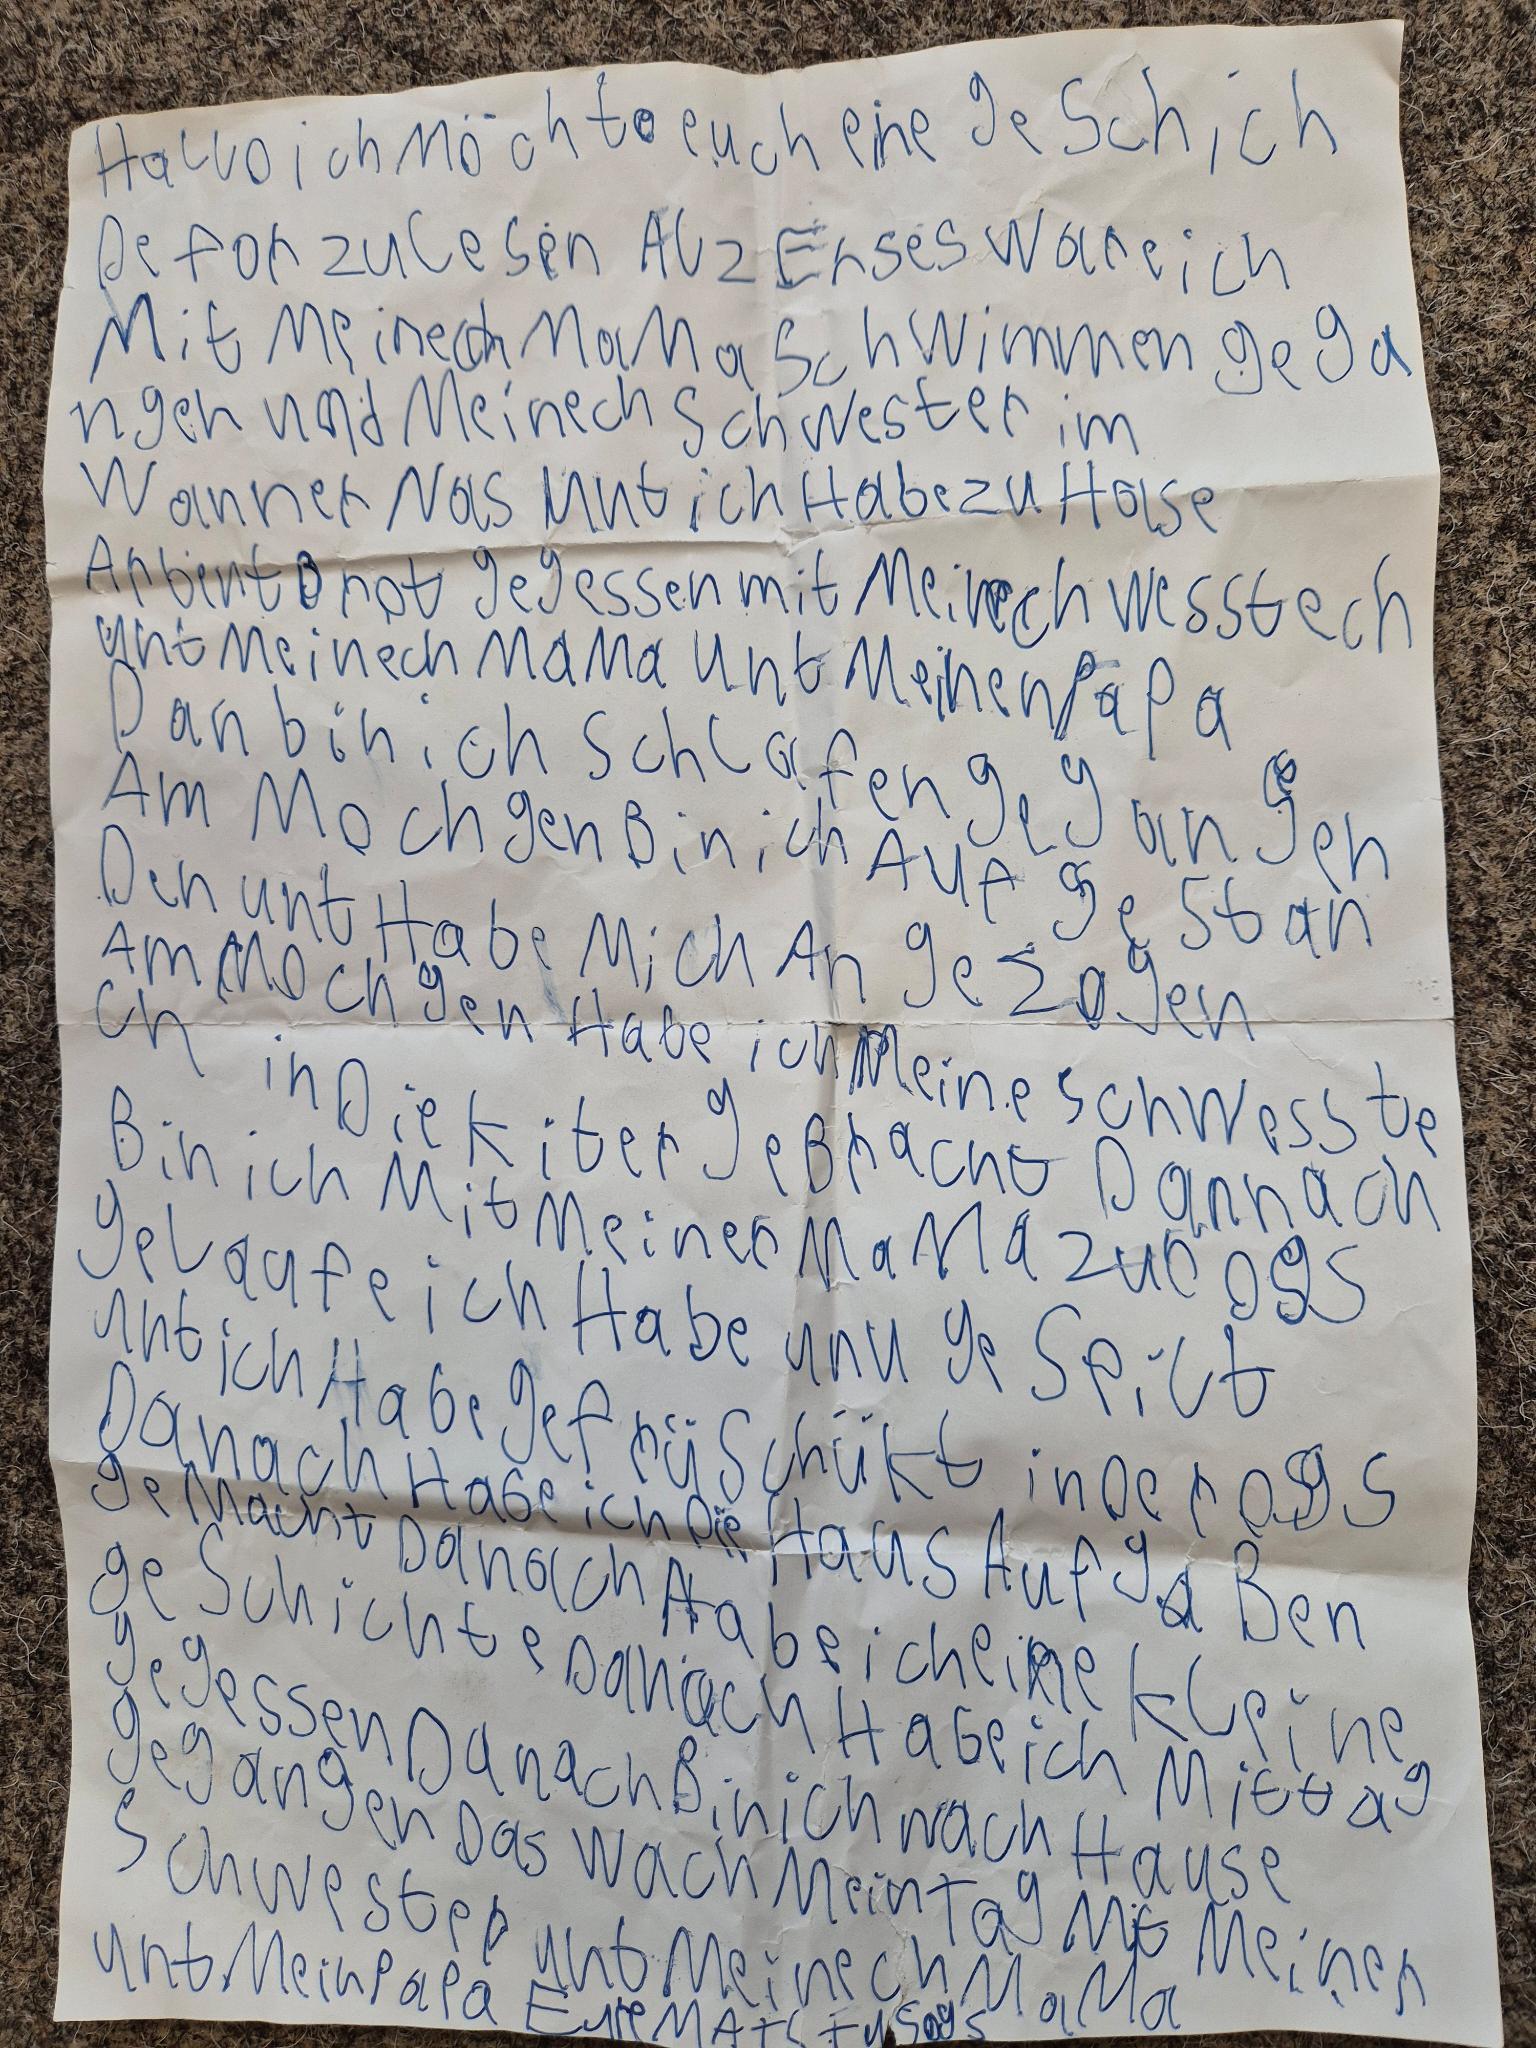 Hallo ich Möchte euch eine geSchich
De for zulesen Alz Erses Wareich
Mit Meinech MaMa Schwimmen gega
ngen und Meinech Schwester im
Wanner Nas Unt ich Habe zu Hase
Arbent Brot gegessen mit Meinech Wesstech
unt Meinech MaMa unt Meinen Papa
Dan bin ich Schlafen gegangen
Am Mochgen Bin ich Auf geStan
Den unt Habe Mich An gezogen
Am Mochgen Habe ich Meine Schwesste
ch in Die Kiter geBracht Dannach
Bin ich Mit Meiner MaMa zur ogs
gelaufe ich Habe unu geSpilt
unt ich Habe gefrüSchükt in Der ogs
Danach Habe ich Die HausAufgaBen
geMacht Danach Habe ich eine kleine
geSchichte Danach Habe ich Mittag
gegessen Danach Bin ich nach Hause
gegangen Das wach Mein Tag Mit Meiner
Schwester unt Meinech MaMa
unt Mein Papa